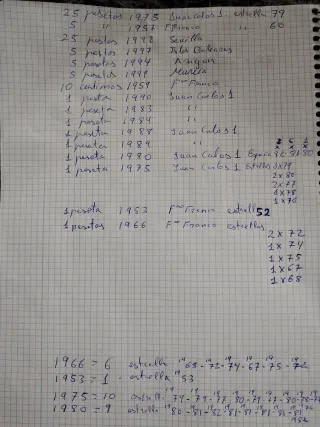 25 pesetas 1975 Juan Carlos 1 estrella 79
5 " 1957 F. Franco " 60
25 pestas 1992 Sevilla
5 pesetas 1997 Islas Baleares
5 pesetas 1994 Aragon
5 pesetas 1999 Murcia
10 centimos 1959 Fco Franco
1 peseta 1990 Juan Carlos 1
1 peseta 1983 "
1 peseta 1984 "
1 peseta 1988 Juan Carlos 1
1 peseta 1989 "
1 peseta 1980 Juan Carlos 1 España 82-81-80
1 peseta 1975 Juan Carlos 1 Estrellas 3x79
2x80
3x77
4x78
1x76
1 peseta 1953 Fco Franco estrella 52
1 pesetas 1966 Fco Franco estrellas
2x72
1x74
1x75
1x67
1x68
1966 = 6 estrella
1953 = 1 - estrella 1953
1975 = 10 estrella
1980 = 9 estrella
1982